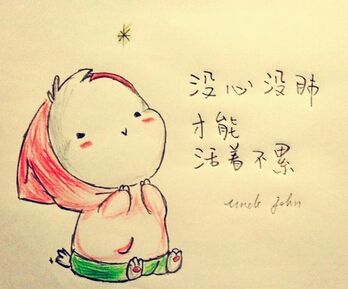 没心没肺
才能
活着不累
uncle John